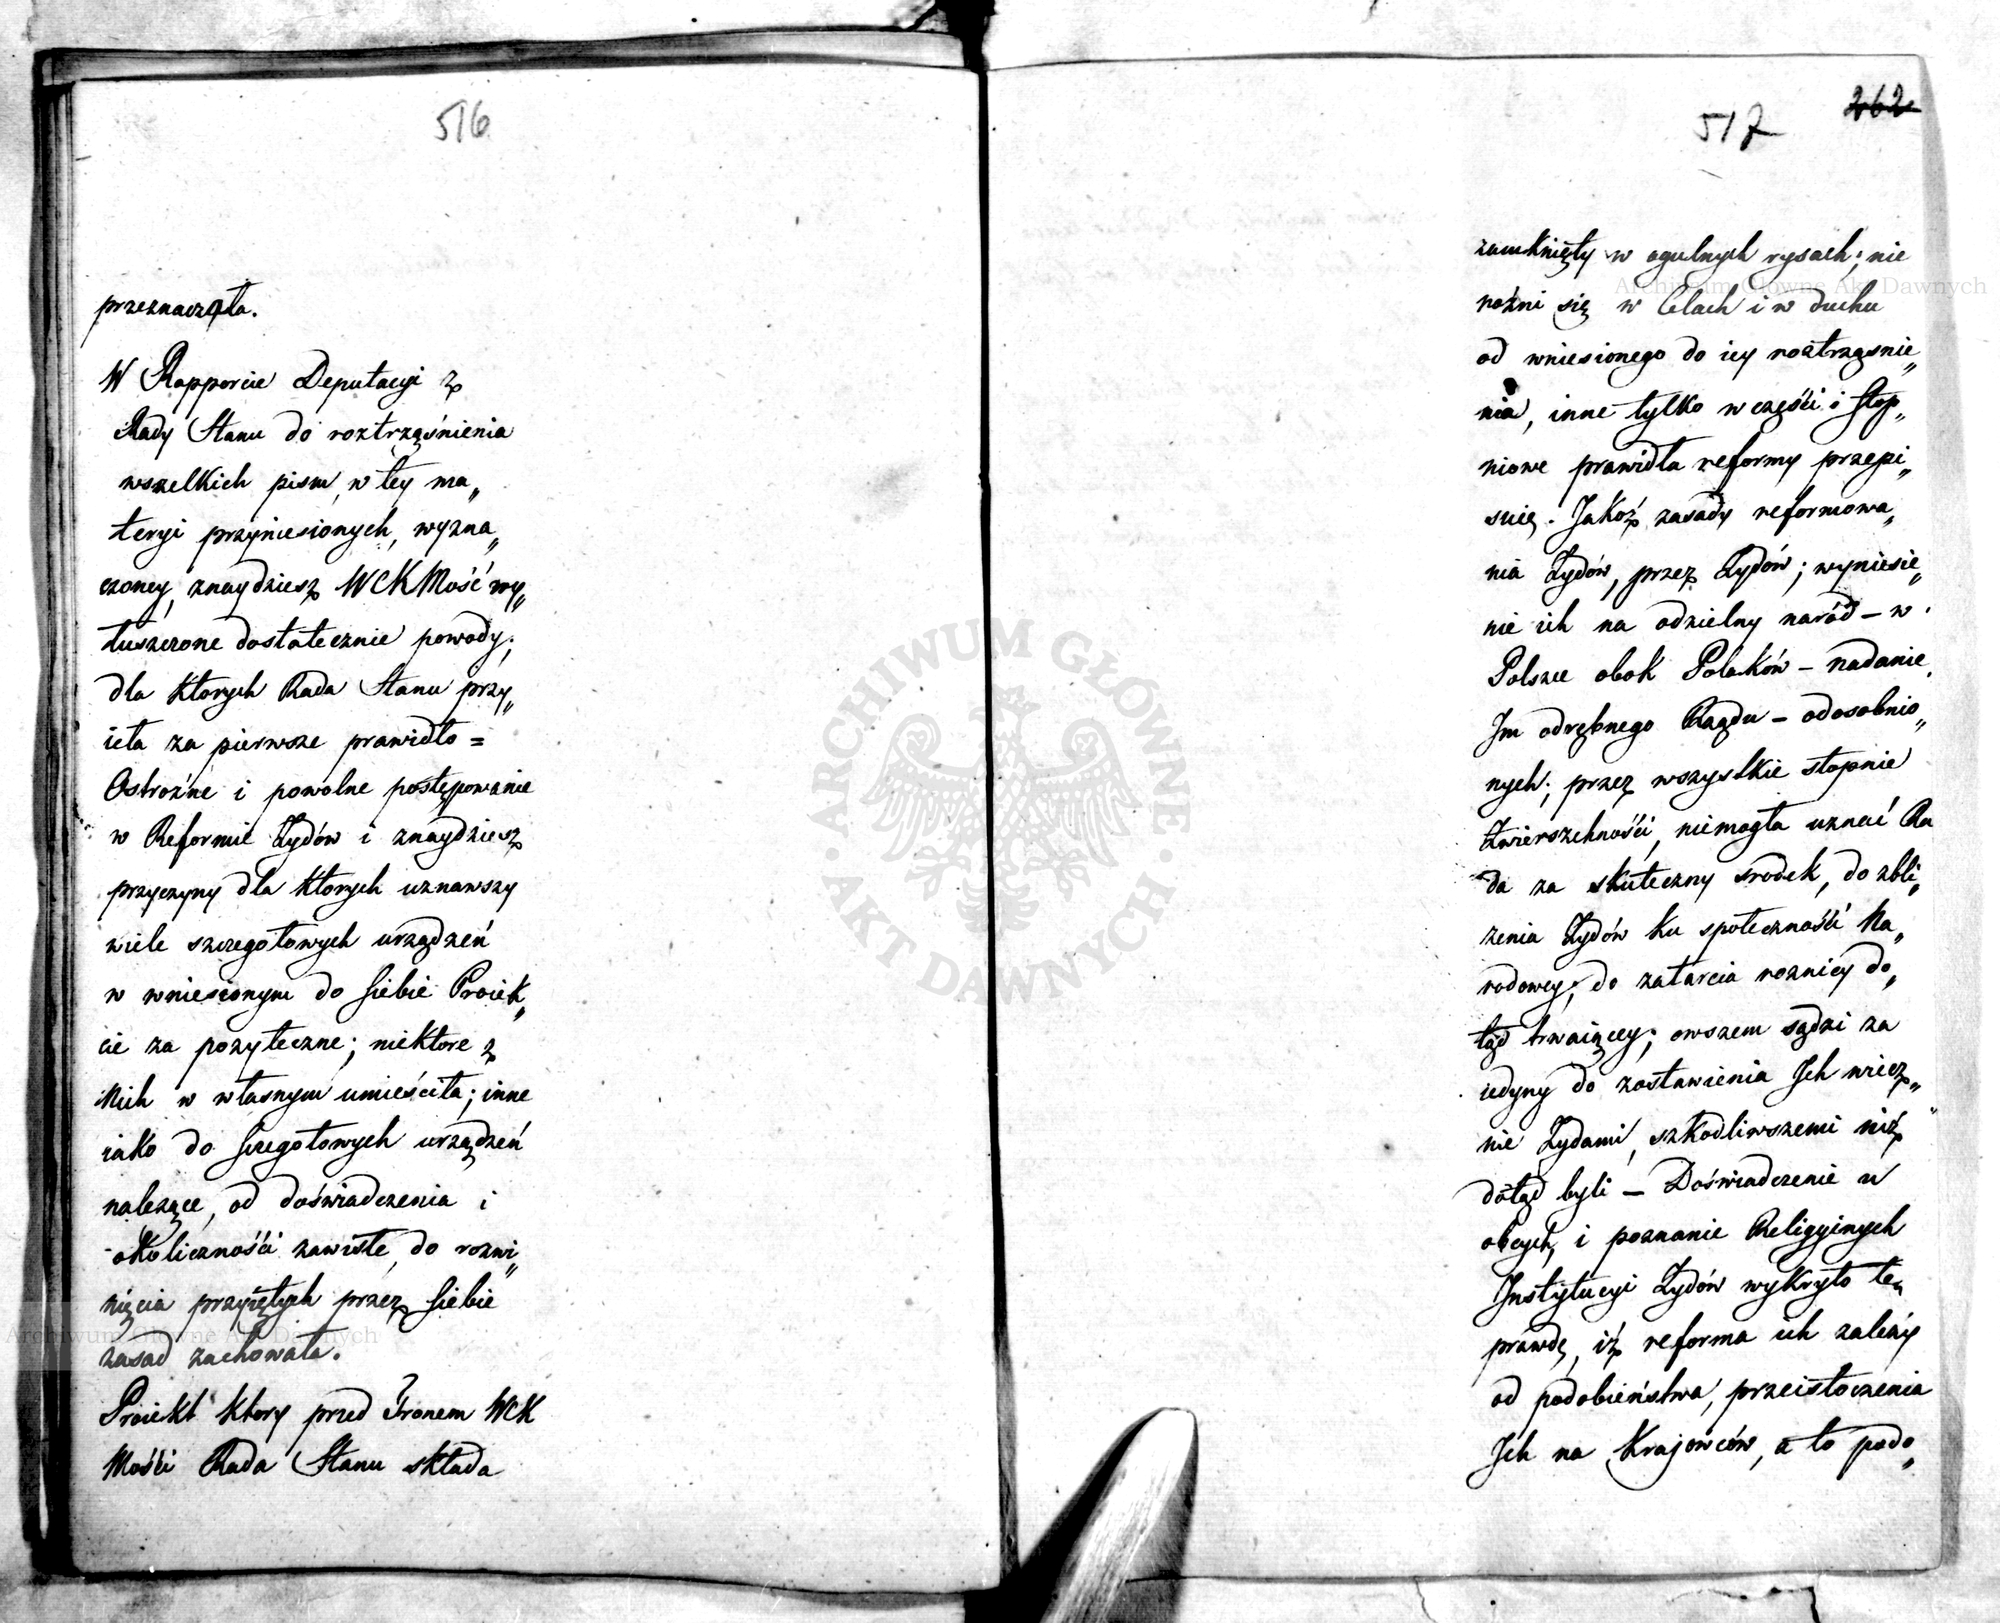 516
przeznaczyła.
W Rapporcie Deputacyi z
Rady Stanu do roztrząśnienia
wszelkich pism, w tey ma„
teryi przyniesionych, wyzna„
czoney, znaydziesz WCKMość wy„
łuszczone dostatecznie powody;
dla ktorych Rada Stanu przy„
ieła za pierwsze prawidło =
Ostrożne i powolne postępowanie
w Reformie Żydów i znaydziesz
przyczyny dla ktorych uznawszy
wiele szczegołowych urządzeń
w wniesionym do siebie Proiek„
cie za pozyteczne; niektore z
Nich w własnym umieściła; inne
iako do szczegołowych urządzeń
nalezące, od doświadczenia i
okoliczności zawisłe, do rozwi„
nięcia przyiętych przez siebie
zasad zachowała.
Proiekt ktory przed Tronem WCK
Mości Rada Stanu składa
517
262
zamknięty w ogulnych rysach; nie
rożni się w Celach i w duchu
od wniesionego do iey roztrząsnie„
nia, inne tylko w części i stop„
niowe prawidła reformy przepi„
suię. Jakoż zasady reformowa„
nia Żydów, przez Żydów; wyniesie„
nie ich na odzielny naród – w
Polszcze obok Polaków – nadanie
Im odrębnego Rządu – odosobnio„
nych; przez wszystkie stopnie
Zwierszchności, niemogła uznać Ra
da za skuteczny srodek, do zbli„
żenia Żydów ku społeczności Na„
rodowey; do zatarcia roznicy do„
tąd trwaiącey; owszem sądzi za
iedyny do zostawienia Ich wiecz„
nie Żydami, szkodliwszemi niż
dotąd byli – Doświadczenie u
obcych, i poznanie Religyinych
Instytucyi Żydów wykryło tę
prawdę, iż reforma ich zależy
od podobieństwa, przeistoczenia
Ich na Krajowców, a to podo„
ARCHIWUM GŁÓWNE AKT DAWNYCH
Archiwum Główne Akt Dawnych
Archiwum Główne Akt Dawnych